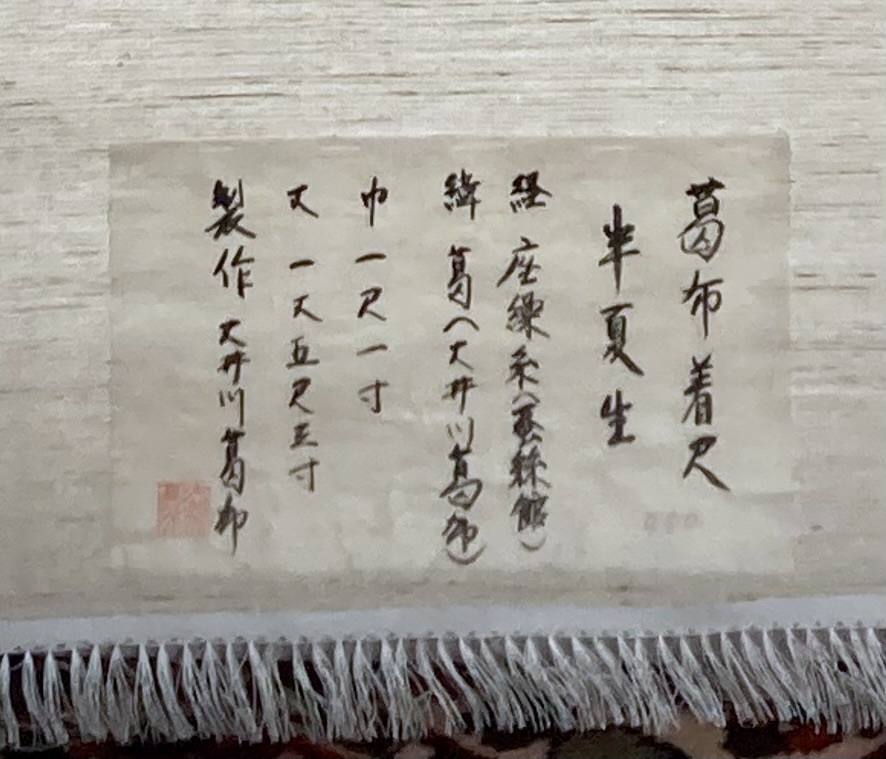 葛布着尺
半夏生
経 座繰糸（蚕絲館）
緯 葛（大井川葛布）
巾 一尺一寸
丈 一丈五尺三寸
製作 大井川葛布